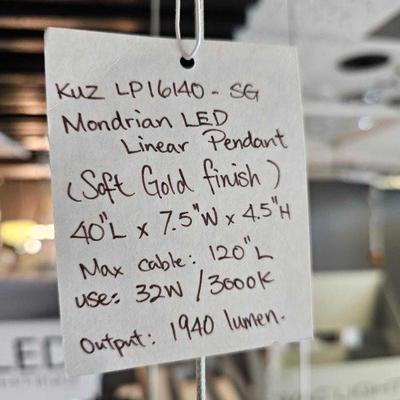 KUZ LP16140 - SG
Mondrian LED
Linear Pendant
(Soft Gold finish)
40"L x 7.5"W x 4.5"H
Max cable: 120"L
use: 32W / 3000K
Output: 1940 lumen.
LED